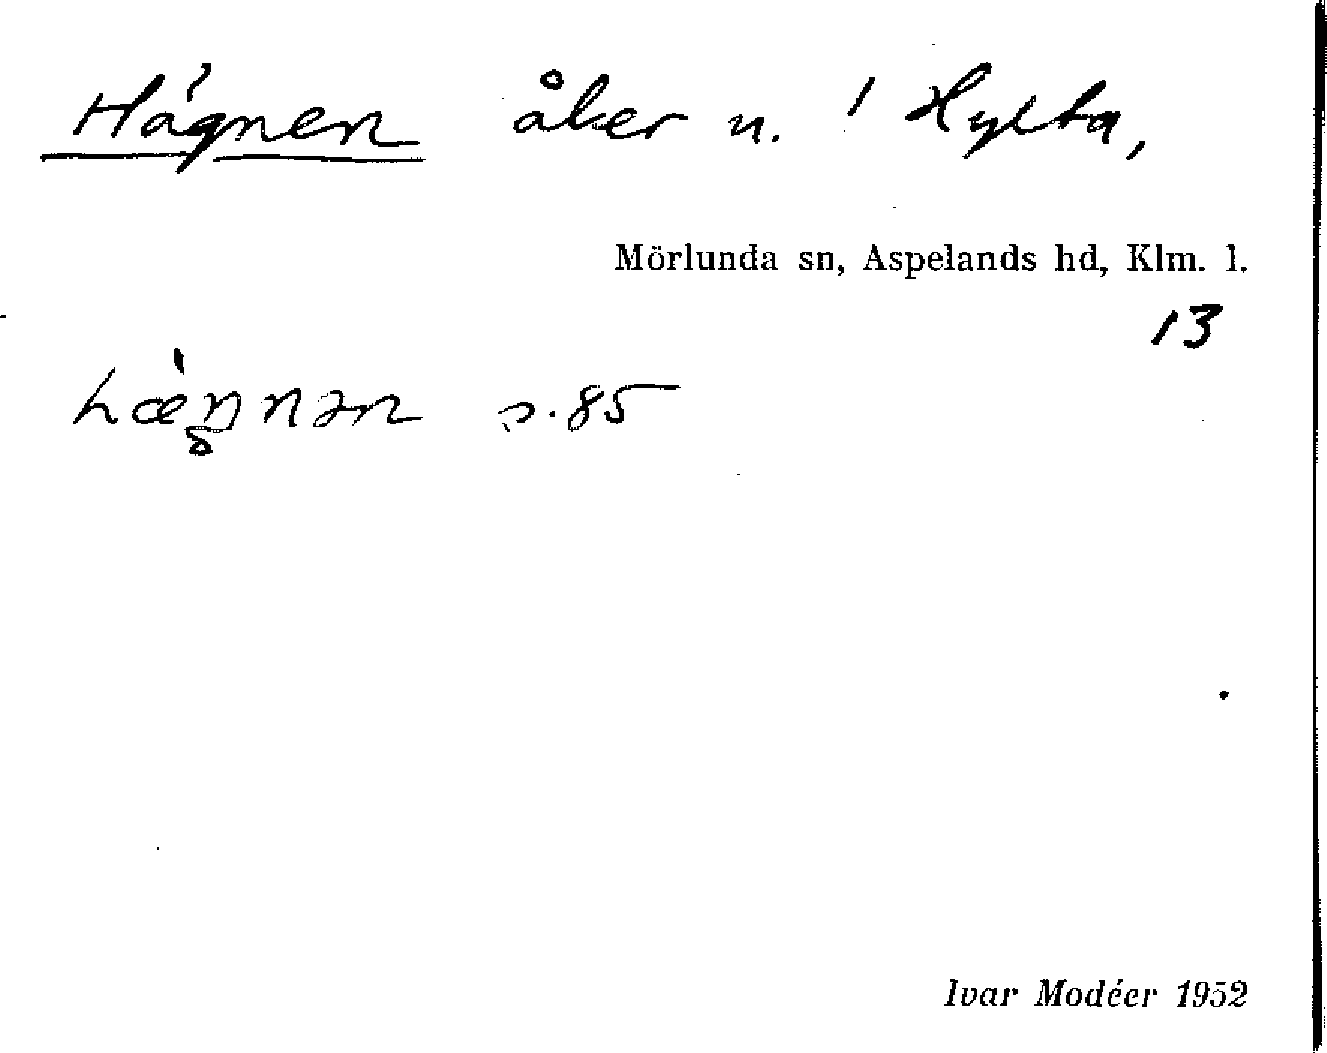 Hägnen åker n. 1 Hylta,
Mörlunda sn, Aspelands hd, Klm. l.
13
hæ̀ŋnən s. 85
Ivar Modéer 1952